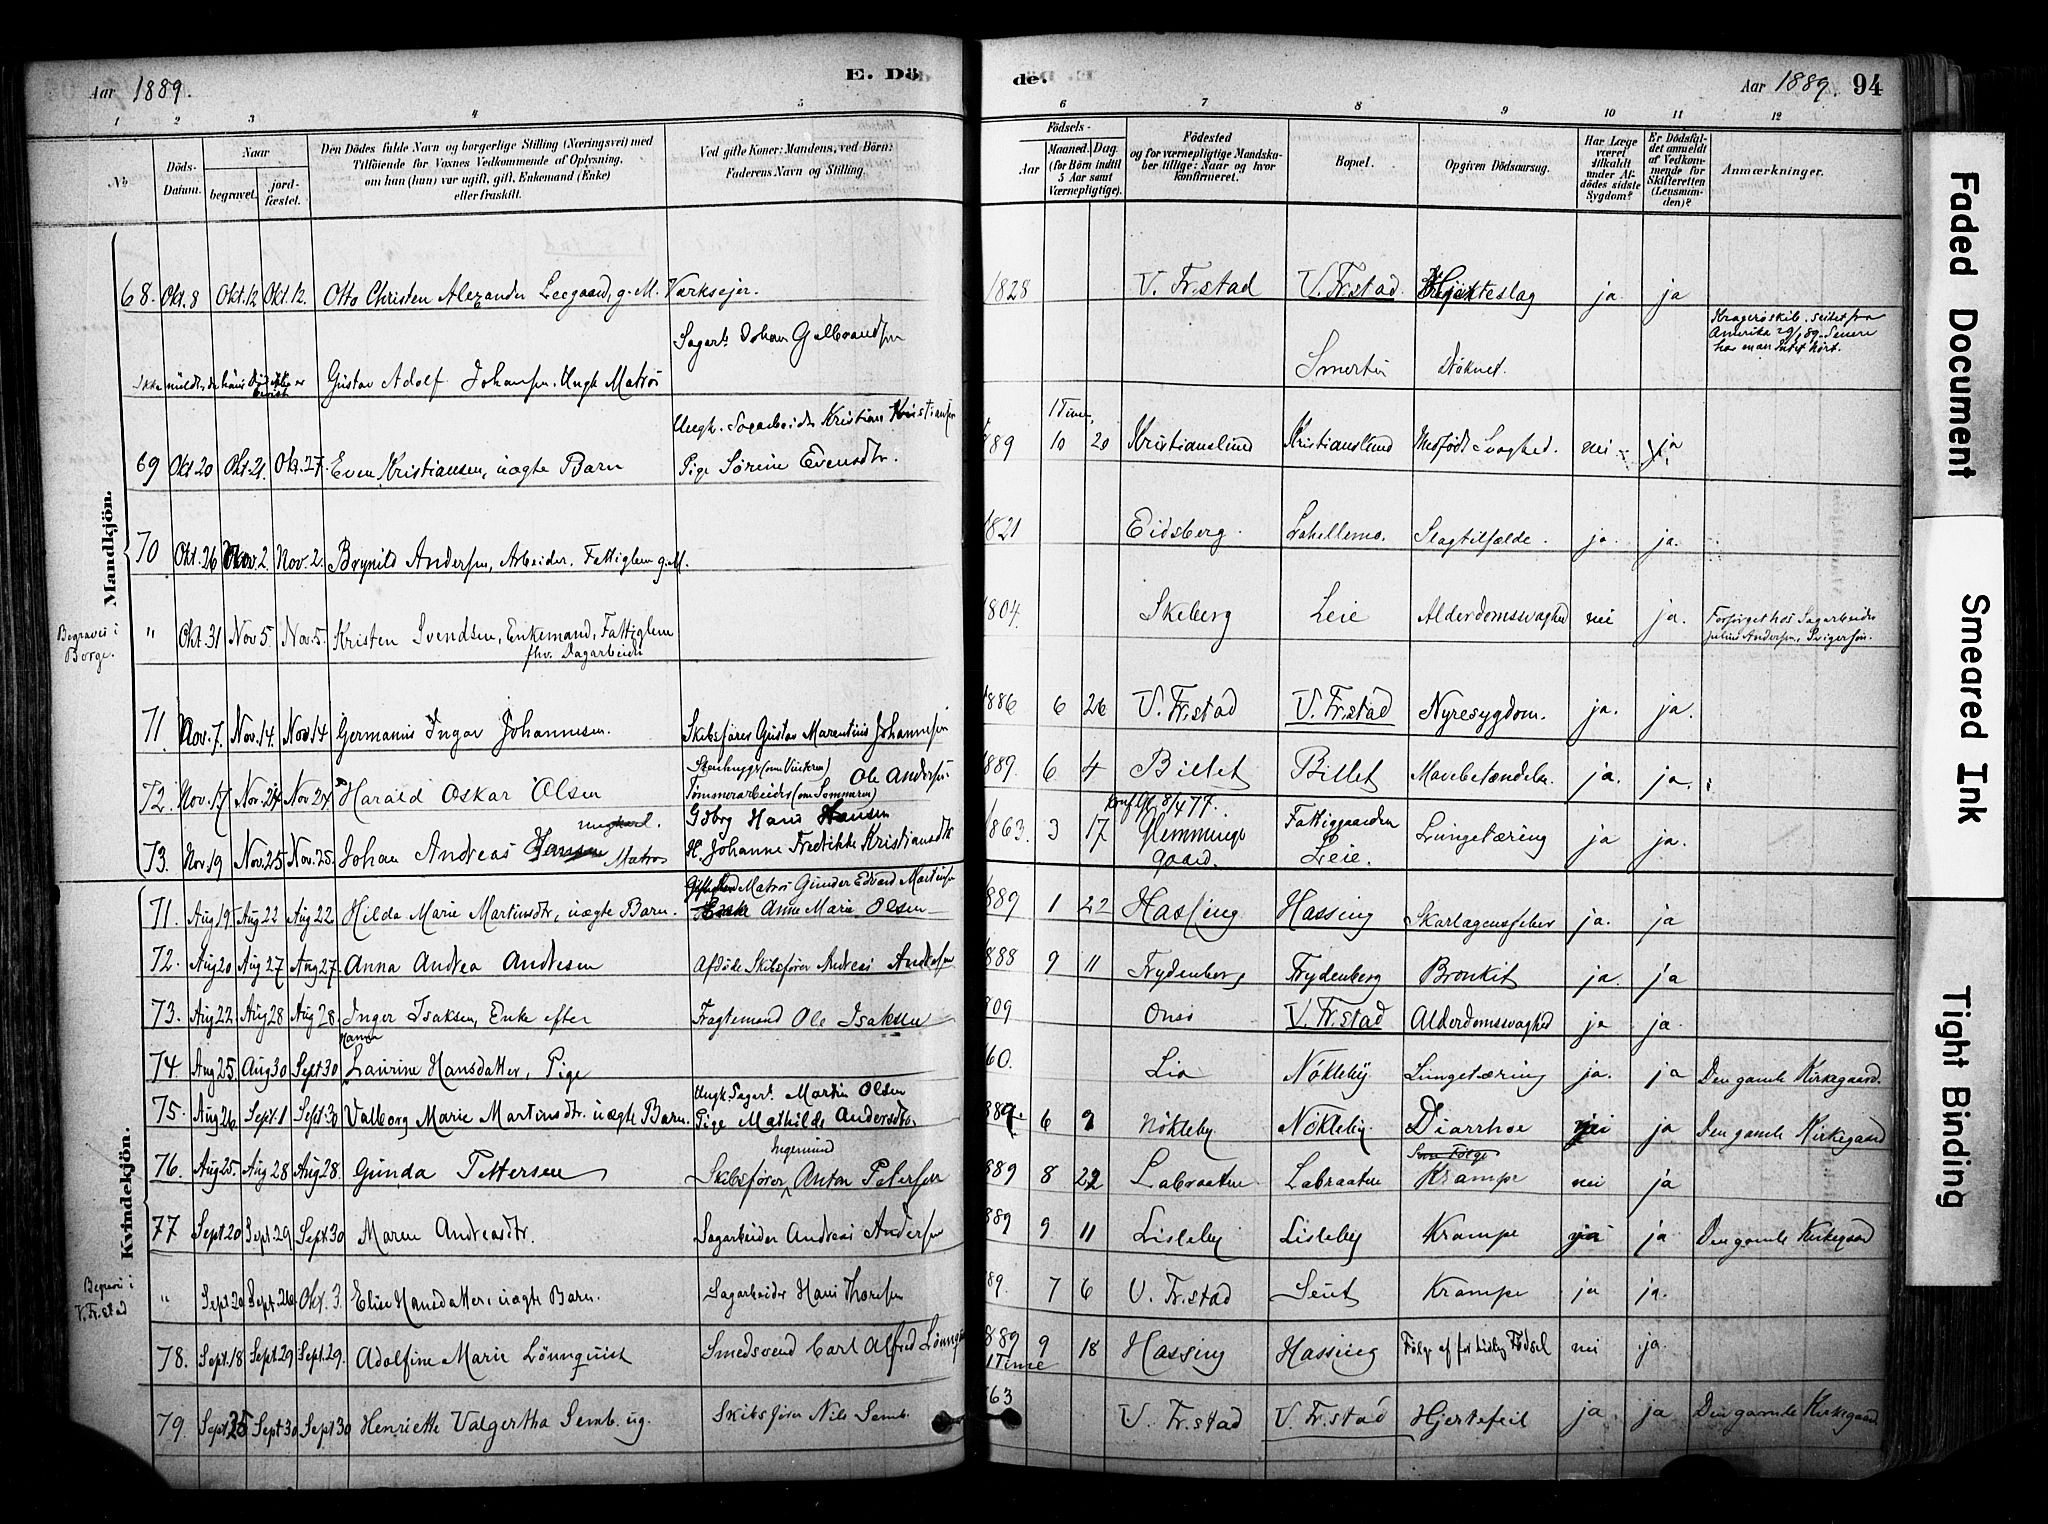 Aar 1889.
E. Dö
de.
Aar 1889. 94
1 2 3 4 5 6 7 8 9 10 11 12
No
Döds-Datum.
Naar
begravet.
jordfæstet.
Den Dödes fulde Navn og borgerlige Stilling (Næringsvei) med
Tilföiende for Voxnes Vedkommende af Oplysning,
om han (hun) var ugift, gift, Enkemand (Enke)
eller fraskilt.
Ved gifte Koner: Mandens, ved Börn:
Faderens Navn og Stilling.
Födsels-
Aar
Maaned. Dag.
(for Börn indtil
5 Aar samt
Værnepligtige).
Födested
og for værnepligtige Mandska-
ber tillige: Naar og hvor
konfirmeret.
Bopæl.
Opgiven Dödsaarsag.
Har Læge
været
tilkaldt
under Af-
dödes sidste
Sygdom?
Er Dödsfal-
det anmeldt
af Vedkom-
mende for
Skifteretten
(Lensman-
den)?
Anmærkninger.
Mandkjön.
68. Okt. 8 Okt. 12 Okt. 12. Otto Christen Alexander Leegaard, g. M. Værksejer. 1828 V. Fr.stad V. Fr.stad Hjerteslag ja. ja
Gustav Adolf Johansen. Ungk. Matros Sagarb. Johan Gulbrandsen Smertu Döknet.
69 Okt 20 Okt. 21. Okt. 27. Even Kristiansen, uægte Barn Ungk. Sagarbeider Kristian Kristiansen
Pige Sörine Evensdtr. 89 1 Time 10 20 Kristianslund Kristianslund Medfödt Svaghed. nei ja
70 Okt. 26 Nov. 2. Nov. 2. Brynild Andersen, Arbeider. Fattiglem g. M. 1821 Eidsberg. Lahellemo. Slagtilfælde. ja. ja.
Begraves i
Borge.
" Okt. 31 Nov 5. Nov. 5. Kristen Svendsen, Enkemand, Fattiglem
fhv. Dagarbeider 1804. Skeberg Leie Alderdomssvaghed nei ja. Forsörget hos Sagarbeider
Andersen, Svigersön.
71. Nov. 7. Nov. 14. Nov 14 Germanius Ingar Johannesen. Skibsförer Gustav Marentius Johannesen 1886 6 26 V. Fr.stad V. Fr.stad Nyresygdom. ja. ja.
72. Nov. 17 Nov. 24 Nov 24 Harald Oskar Olsen Stenhugger (om Vinteren) Ole Andersen
Tömmerarbeider (om Sommeren) 1889. 6 4 Billet Billet Mavebetændelse ja. ja.
73. Nov. 19 Nov. 25 Nov. 25. Johan Andreas Hansen ungkarl. Matros Gdbrg Hans Hansen
H. Johanne Fredrikke Kristiansdtr 1863. 3 17 Konf. Gl. 8/4 77.
Glemminge
gaard. Fattiggaarden
Leie. Lungetæring ja ja.
Kvindekjön.
71. Aug 19. Aug 22 Aug 22. Hilda Marie Martinsdtr, uægte Barn. Matros Gunder Edvard Martinsen
Anne Marie Olsen 889 1 22 Hassing Hassing Skarlagensfeber ja. ja
72. Aug 20 Aug 27 Aug 27. Anna Andrea Andresen Afdöde Skibsförer Andreas Andersen 1888 9 11 Frydenberg Frydenberg Bronkit ja. ja
73. Aug 22. Aug 28 Aug 28. Inger Isaksen, Enke efter Fragtemand Ole Isaksen 809 Onsö V. Fr.stad Alderdomssvaghed ja ja.
74. Aug 25. Aug 30 Sept 30 Hanna
Laurine Hansdatter, Pige 60. Lia Nökleby Lungetæring ja. ja Den gamle Kirkegaard.
75. Aug 26 Sept. 1 Sept. 30 Valborg Marie Martinsdtr. uægte Barn. Ungk. Sagarb. Martin Olsen
Pige Mathilde Andersdtr. 889 6 9 Nökleby Nökleby. Diarrhoe nei ja Den gamle Kirkegaard
76. Aug 25. Aug 28 Aug 28. Gunda Pettersen Skibsförer Ingemund Anton Petersen 889 8 22 Labraaten Labraaten Krampe nei ja
77 Sept 20 Sept. 29 Sept. 30 Maren Andreasdtr. Sagarbeider Andreas Andersen 889 9 11 Lisleby Lisleby Krampe ja ja Den gamle Kirkegaard
Begravet i
V. Fr.stad
" Sept 20 Sept. 26 Okt. 3. Elise Hansdatter, uægte Barn. Sagarbeider Hans Thoresen 89. 7 6 V. Fr.stad Seut Krampe ja ja.
78. Sept. 18 Sept. 29 Sept. 29. Adolfine Marie Lönnquist Smedsvend Carl Alfred Lönnquist 889 9 18
1 Time Hassing Hassing Fölge af for tidlig Födsel nei ja.
79. Sept 25 Sept 30 Sept 30 Henriette Valgertha Semb. ug. Skibsförer Nils Semb. 63 V. Fr.stad V. Fr.stad Hjertefeil ja. ja Den gamle Kirkegaard
Faded Document
Smeared Ink
Tight Binding